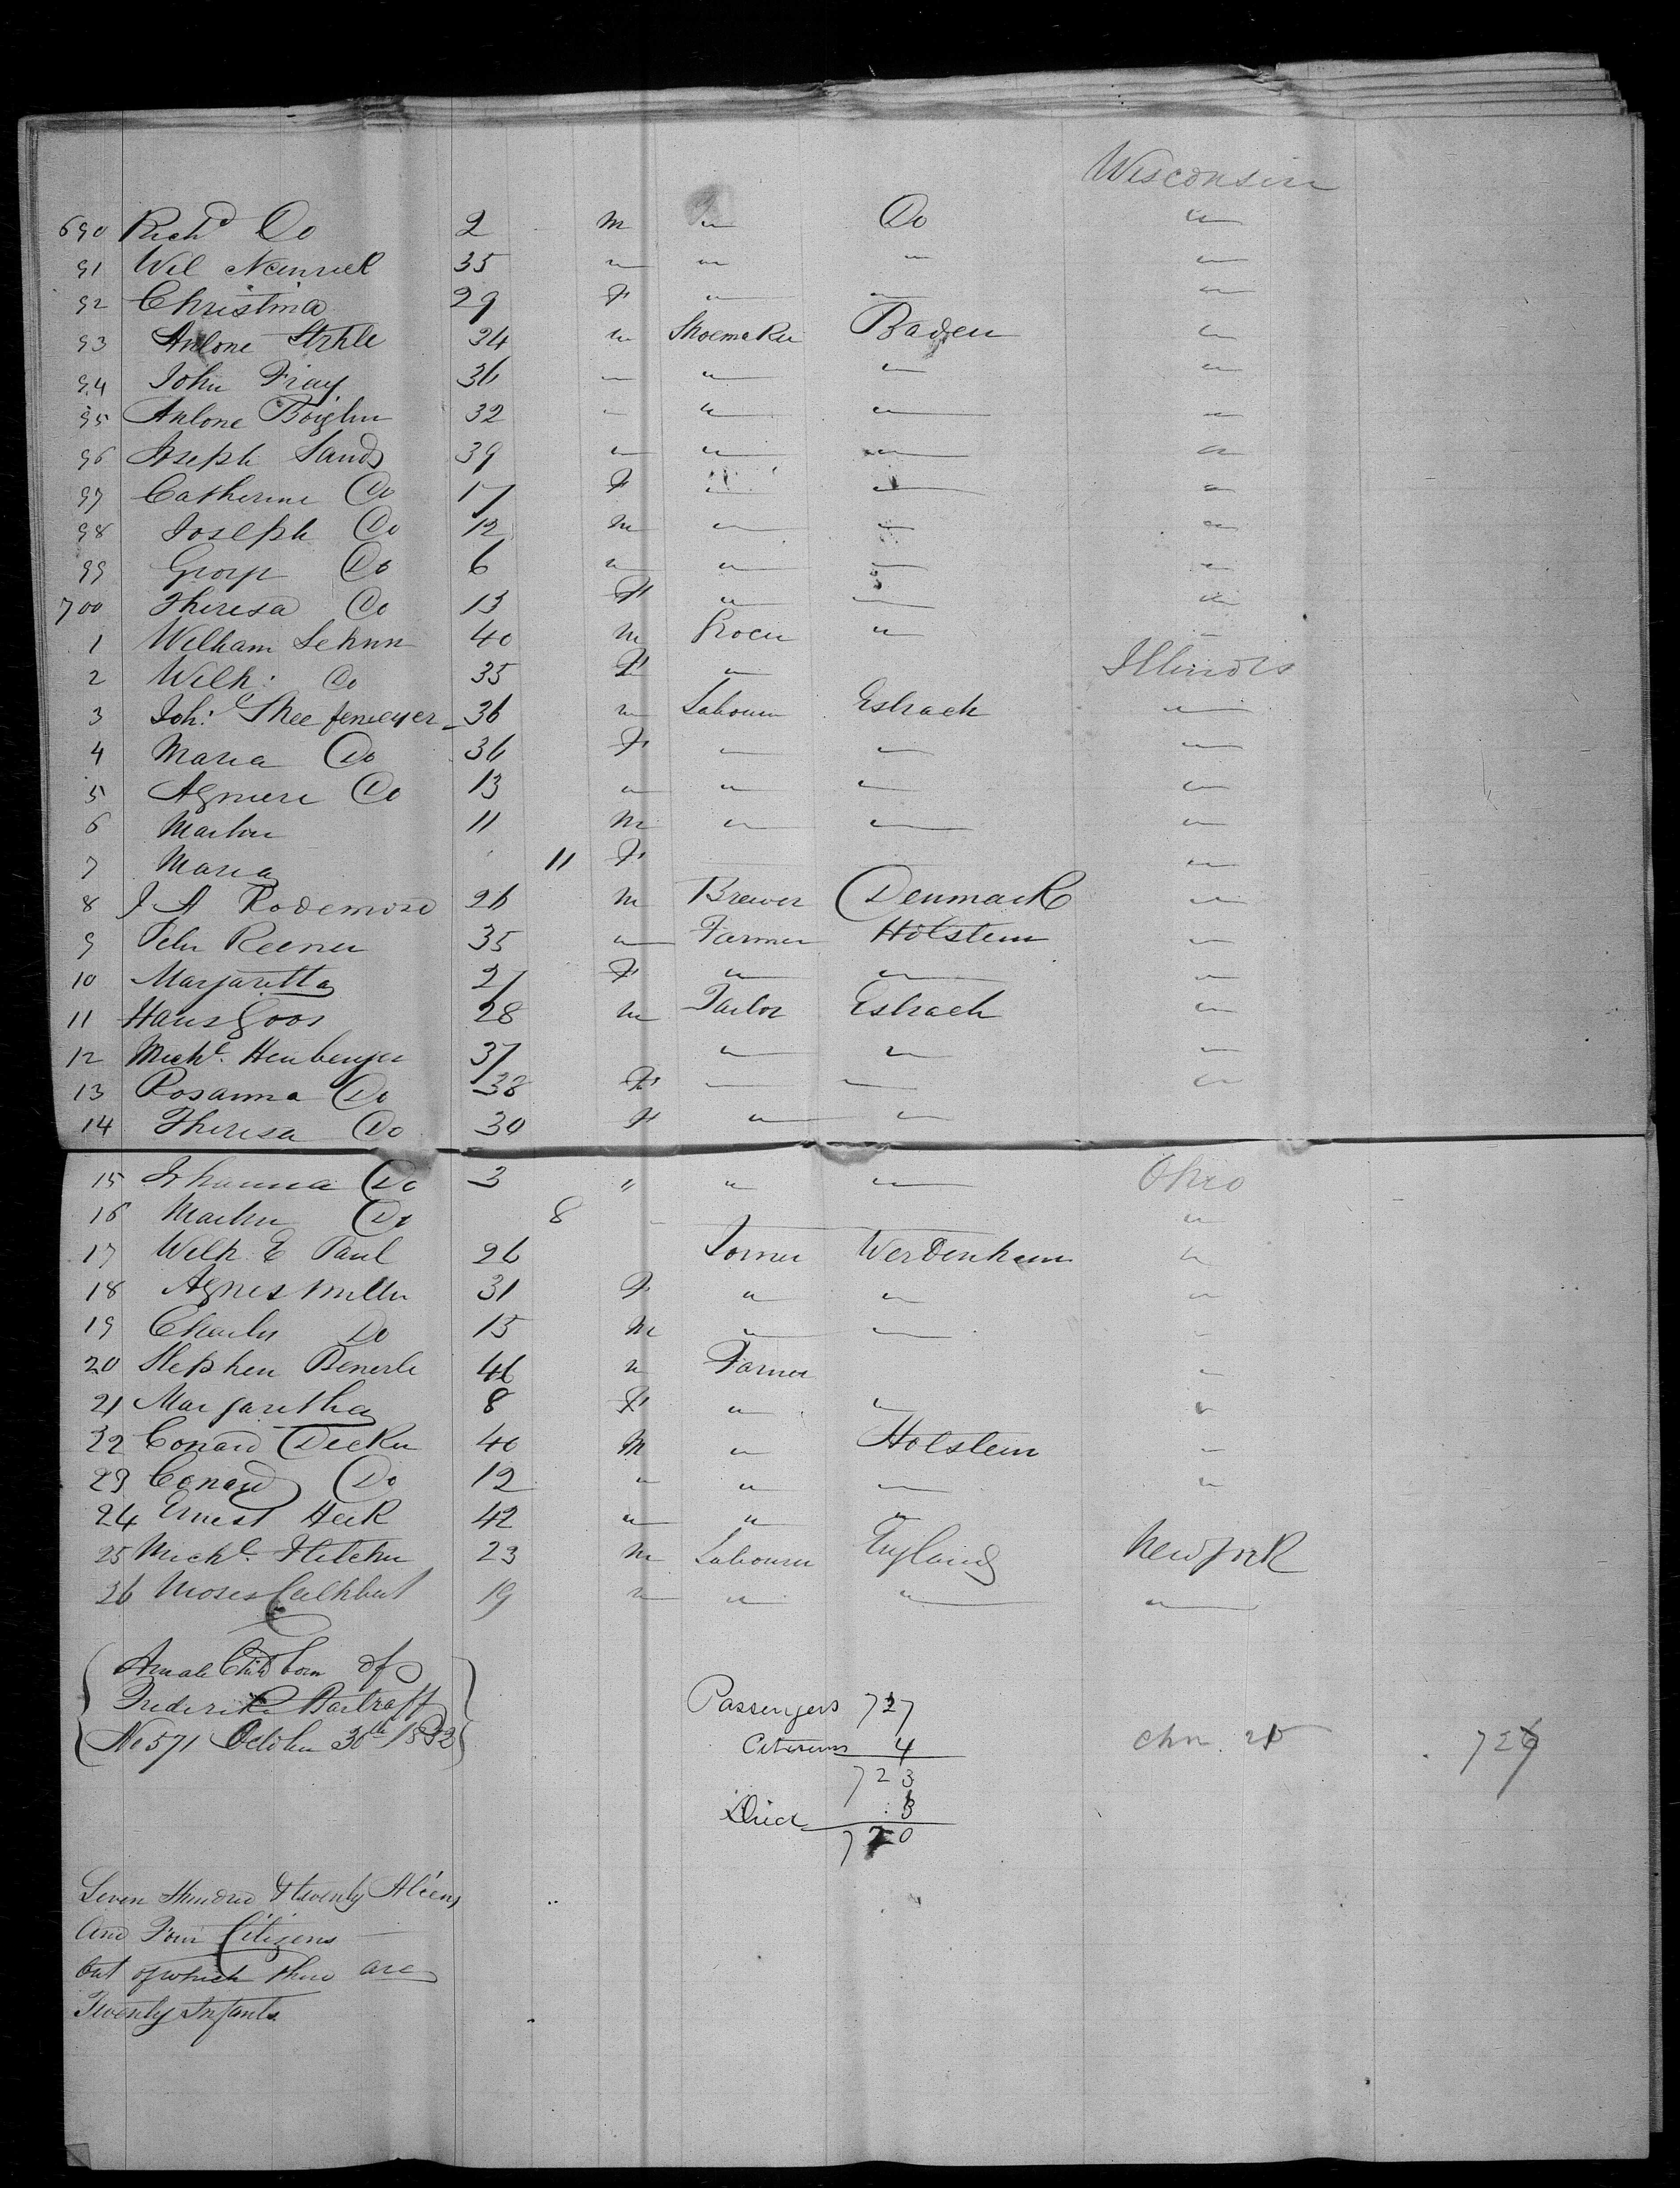 Wisconsin
690 Richd Do 2 m " Do "
91 Wil Neinrick 35 " " " "
92 Christina 29 F " " "
93 Antone Strhle 24 m Shoemaker Baden "
94 John Fray 36 " " " "
95 Antone 32 " " " "
96 Joseph Sands 39 " " " "
97 Catherine Do 17 F " " "
98 Joseph Do 12 m " " "
99 George Do 6 " " " "
700 Theresa Do 13 F " " "
1 William Schnn 40 m Grocer " "
2 Wilh: Do 35 F " Illinois
3 Joh: 36 m Labourer Eslrach "
4 Maria Do 36 F " " "
5 Do 13 " " " "
6 Martin 11 m " " "
7 Maria 11 F "
8 J A Rodemose 26 m Brewer Denmark "
9 Peter Reener 35 " Farmer Holstein "
10 Margaretta 21 F " " "
11 Hans Goos 28 m Tailor Eslrach "
12 Michl. Henberger 37 " " "
13 Rosanna Do 38 F " " "
14 Theresa Do 30 F " "
15 Johanna Do 3 " " " Ohio
16 Martin Do 8 "
17 Wilh E Paul 26 Werdenheim "
18 Agnes Miller 31 F " " "
19 Charles Do 15 M " " "
20 Stephen Benerle 46 " Farmer "
21 Margaretha 8 F " " "
22 Conard Decker 40 M " Holstein "
23 Conard Do 12 " " " "
24 Ernest Heck 42 " " "
25 Michl. Fletcher 23 m Labourer England New York
26 Moses Cuthbert 19 " " " "
A male Child born of
Frederike Bartraff
No 571 October 30th 1852
Passengers 727
Citizens 4
723
Died 3
720
chn. 25
726
Seven Hundred & twenty Aliens
And Four Citizens
out of which there are
Twenty Infants